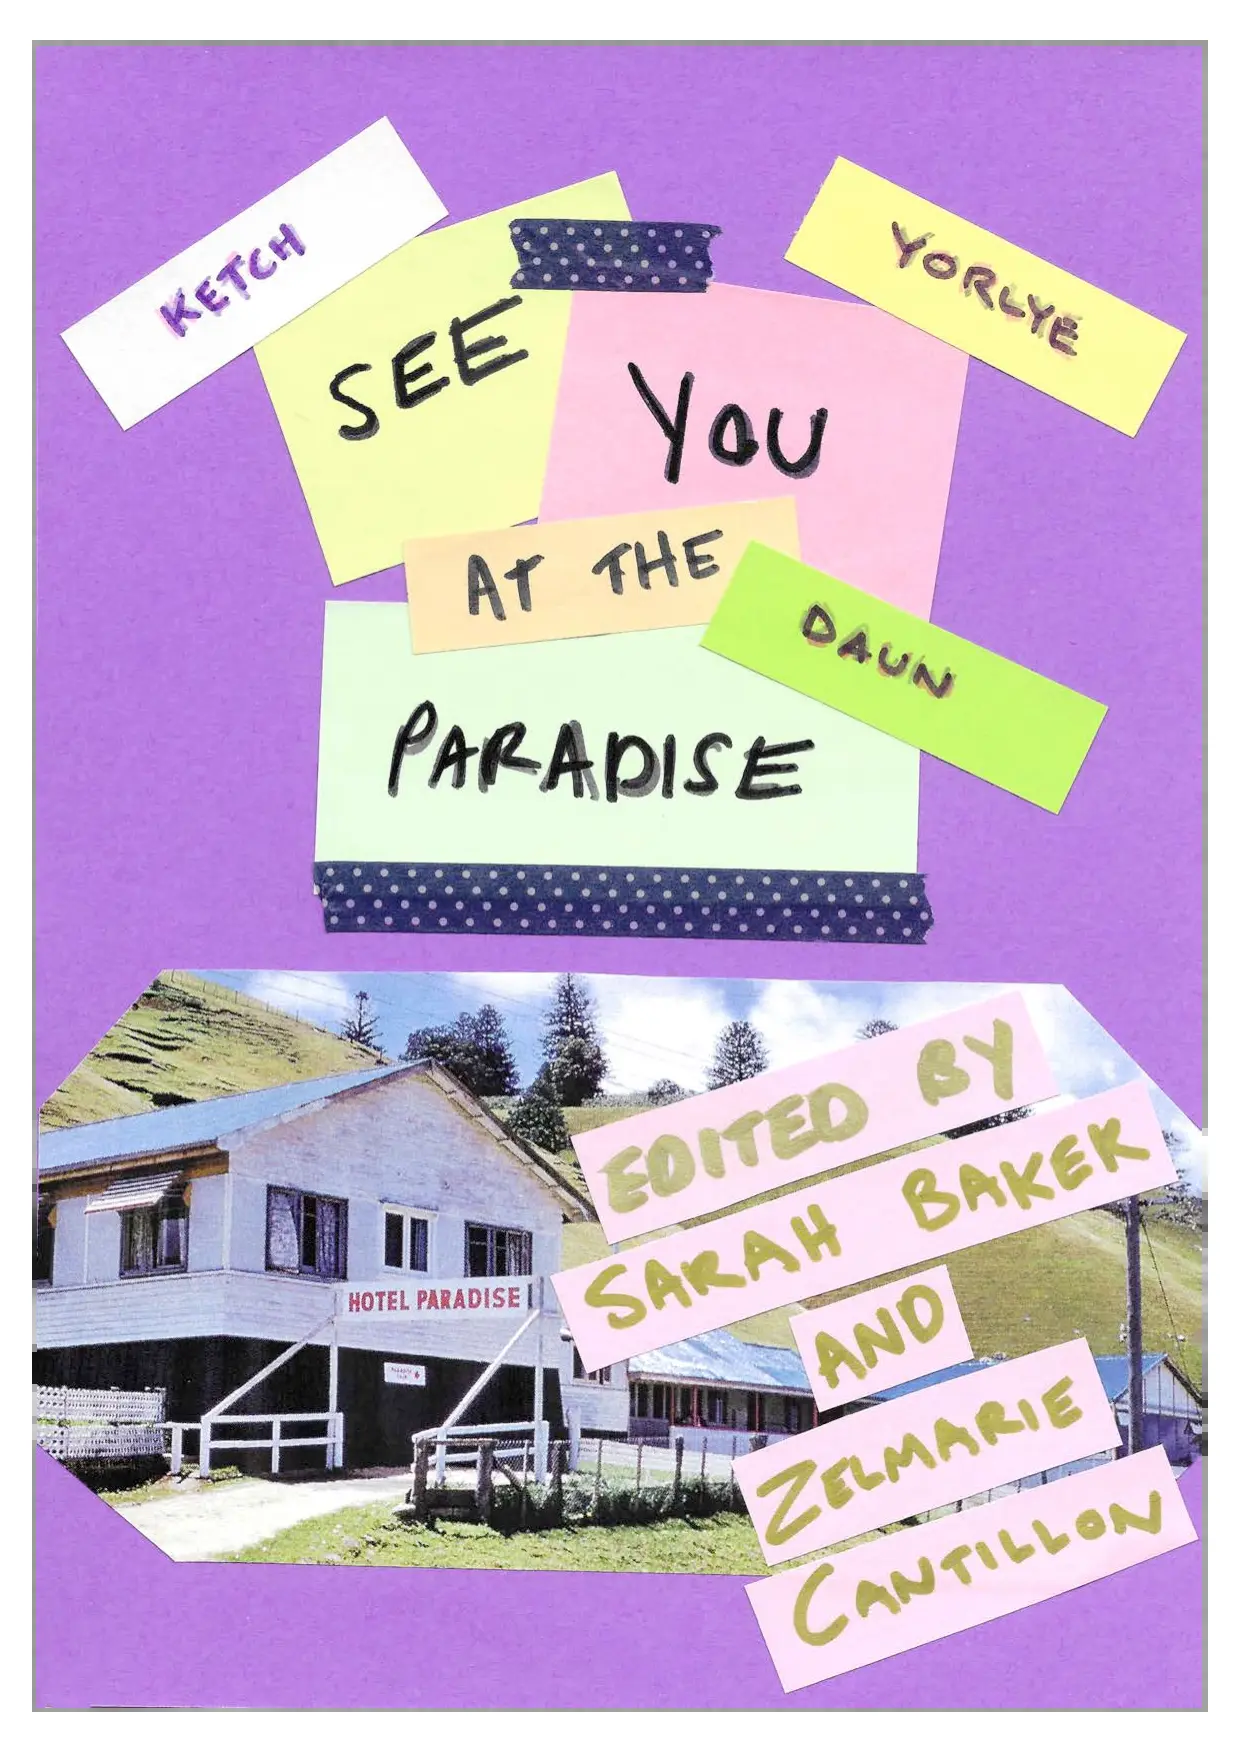 KETCH
YORLYE
DAUN
SEE
YOU
AT THE
PARADISE
HOTEL PARADISE
EDITED BY
SARAH BAKER
AND
ZELMARIE
CANTILLON